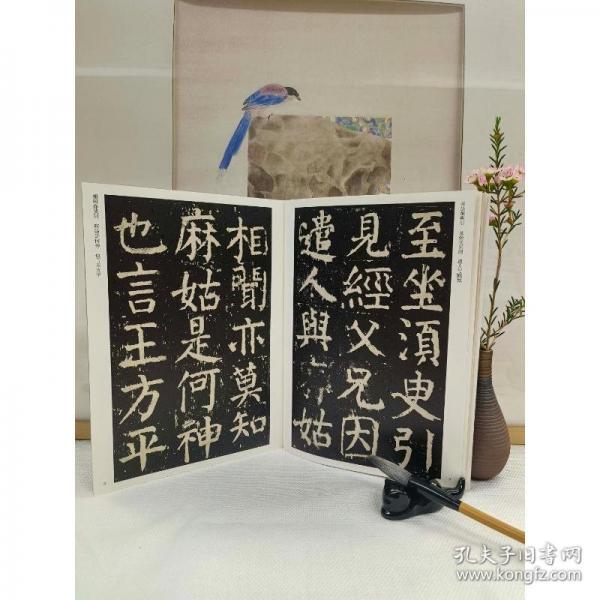 至坐須臾引
見經父兄因
遣人與麻姑
相聞亦莫知
麻姑是何神
也言王方平
孔夫子旧书网
www.kongfz.com